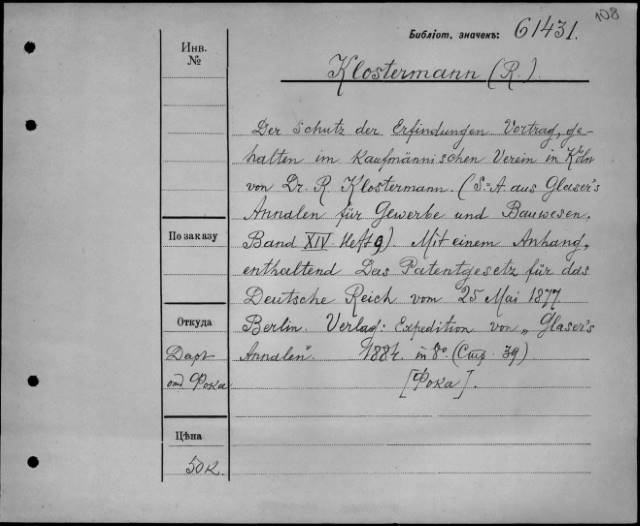 108
Библіот. значекъ: 61431.
Инв.
№
Klostermann (R.)
Der Schutz der Erfindungen Vortrag, ge-
halten im Kaufmännischen Verein in Köln
von Dr. R. Klostermann. (S.-A. aus Glaser's
Annalen für Gewerbe und Bauwesen,
По заказу
Band XIV. Heft 9). Mit einem Anhang,
enthaltend Das Patentgesetz für das
Deutsche Reich vom 25 Mai 1877
Откуда
Berlin. Verlag: Expedition von „Glaser's
Annalen". 1884. in 8º. (Стр. 39)
Даръ
отъ Фока
[Фока].
Цѣна
50 к.